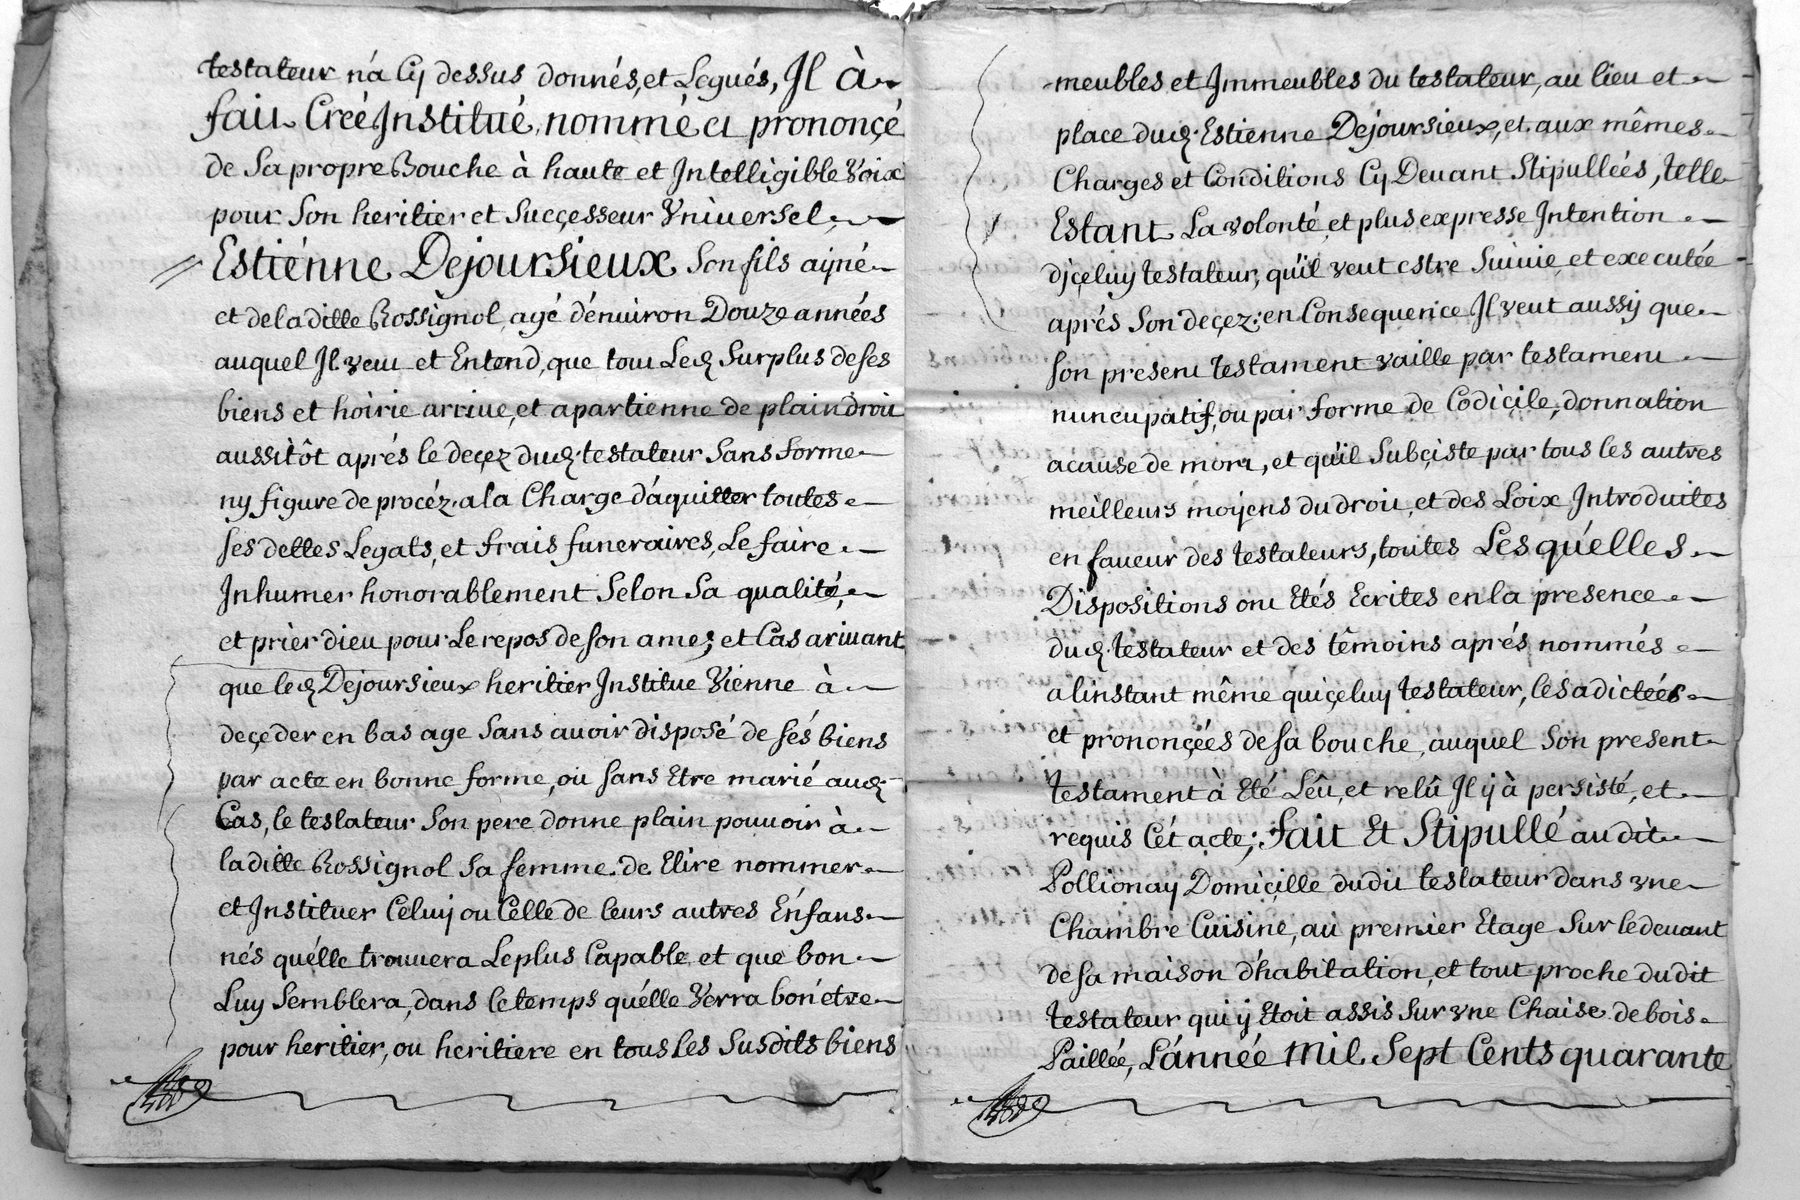 testateur n'a Cy dessus donnés, et Legués, Il à
fait Creé Institué, nommé et prononçé
de Sa propre Bouche à haute et Intelligible Voix
pour Son heritier et Sucçesseur Vniversel,
Estiénne Dejoursieux Son fils ayné
et de la ditte Rossignol, agé d'énuiron Douze années
auquel Il veut et Entend, que tout Led. Surplus de ses
biens et hoirie arriue, et apartienne de plain droit
aussitôt aprés le deçez dud. testateur Sans forme
ny figure de procéz. a la Charge d'aquitter toutes
ses dettes Legats, et frais funeraires, Le faire
Inhumer honorablement Selon Sa qualité,
et prier dieu pour Le repos de son ame; et Cas ariuant
que led. Dejoursieux heritier Institue Vienne à
deçeder en bas age Sans auoir disposé de sés biens
par acte en bonne forme, ou sans Etre marié aud.
Cas, le testateur Son pere donne plain pouuoir à
la ditte Rossignol Sa femme. de Elire nommer
et Instituer Celuy ou Celle de leurs autres Énfans
nés qu'élle trouuera Le plus Capable, et que bon
Luy Semblera, dans le temps qu'élle Verra bon etre
pour heritier, ou heritiere en tous Les Susdits biens
meubles et Immeubles du testateur, au lieu et
place dud. Estienne Dejoursieux, et aux mêmes
Charges et Conditions Cy Deuant Stipulleés, telle
Estant La volonté, et plus expresse Intention
d'jçeluy testateur, qu'il veut estre Suiuie, et executée
aprés Son deçez; en Consequence Il veut aussy que
son present testament vaille par testament
nuncupatif, ou par forme de Codiçile, donnation
a cause de mort, et qu'il Subçiste par tous les autres
meilleurs moyens du droit, et des Loix Introduites
en faueur des testateurs, toutes Lesqu'élles
Dispositions ont Etés Ecrites en la presence
dud. testateur et des têmoins aprés nommés
a linstant même qu'içeluy testateur, les a dictées
et prononçées de sa bouche, auquel Son present
testament à Eté Lêu, et relû Il y à persisté, et
requis Cét acte; Fait Et Stipullé au dit
Pollionay Domiçille du dit testateur dans vne
Chambre Cuisine, au premier Etage Sur le deuant
de sa maison d'habitation, et tout proche du dit
testateur qui y Etoit assis Sur vne Chaise de bois
Paillée, L'année Mil Sept Cents quarante